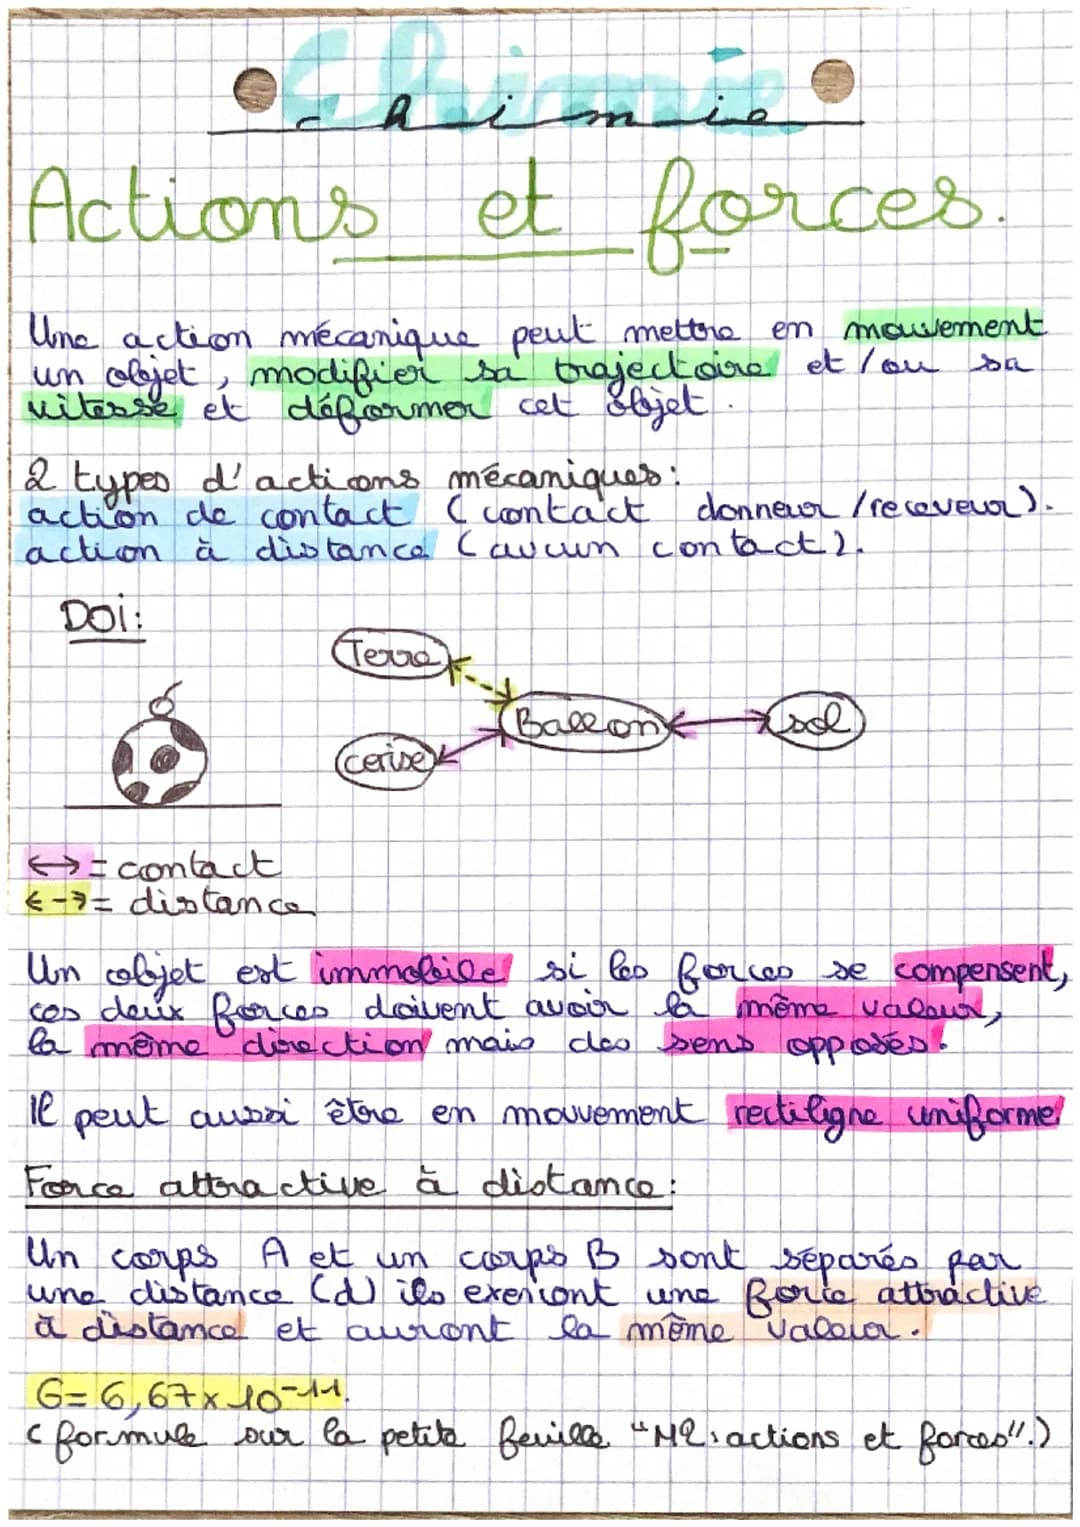 Chimie
Actions et forces.
Une action mécanique peut mettre en mouvement
un objet, modifier sa trajectoire et/ou sa
vitesse et déformer cet objet.
2 types d'actions mécaniques:
action de contact (contact donneur/receveur).
action à distance (aucun contact).
DOi:
Terre
Ballon
sol
cerise
↔ = contact
←-→ = distance
Un objet est immobile si les forces se compensent,
ces deux forces doivent avoir la même valeur,
la même direction mais des sens opposés.
Il peut aussi être en mouvement rectiligne uniforme.
Force attractive à distance:
Un corps A et un corps B sont séparés par
une distance (d) ils exercont une force attractive
à distance et auront la même valeur.
G=6,67×10⁻¹¹.
(formule sur la petite feuille "M2: actions et forces".)